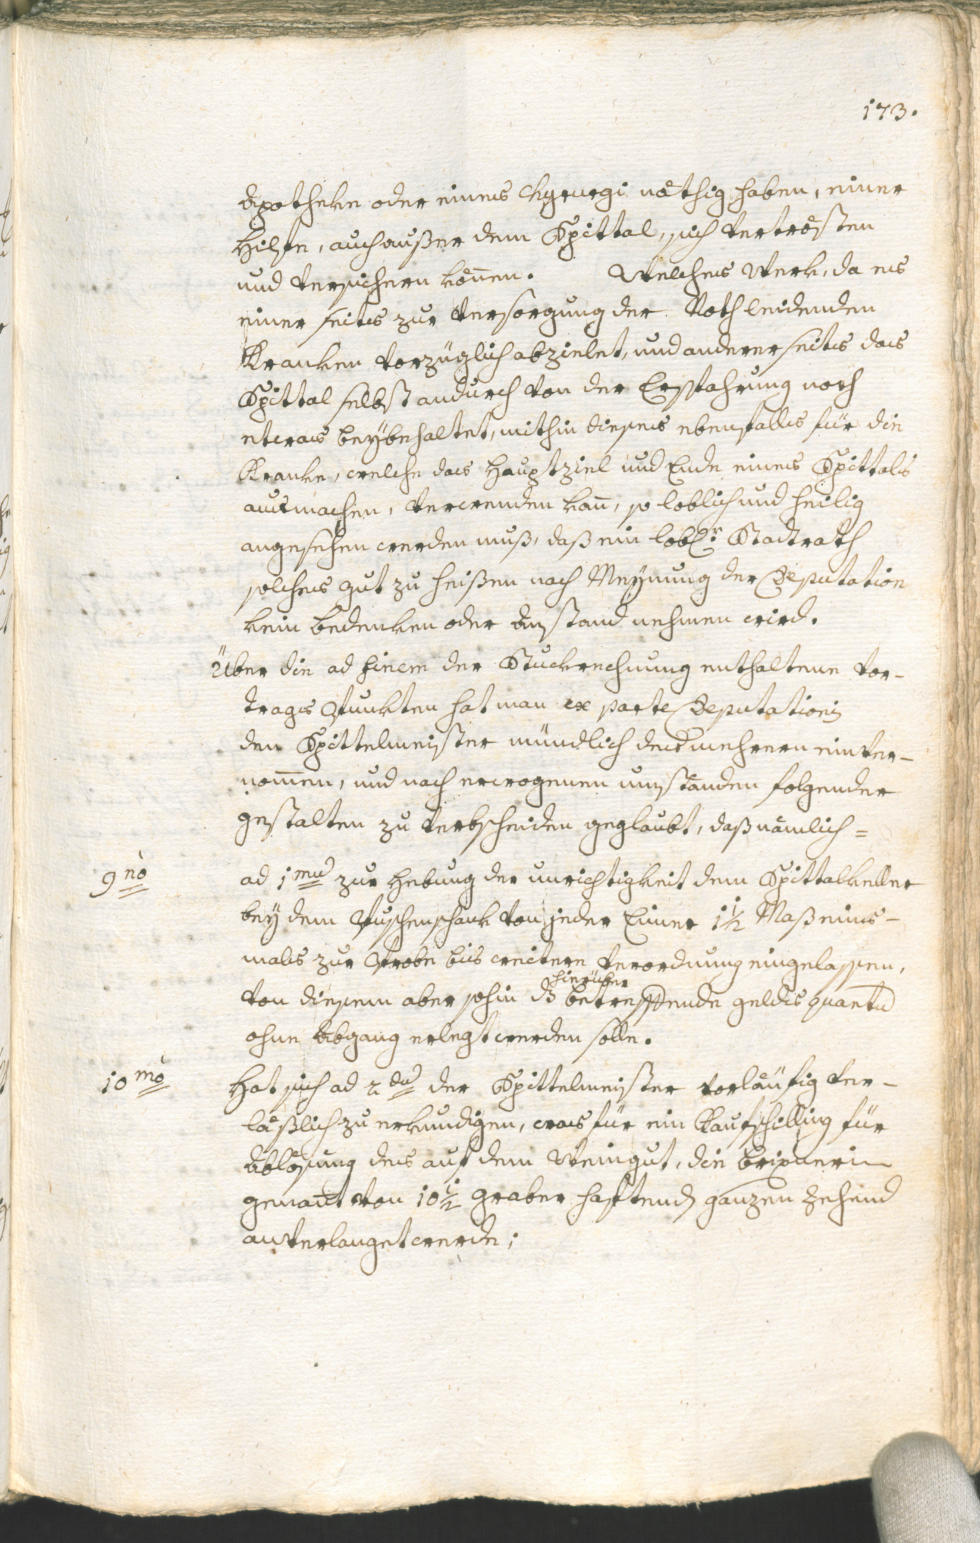 173.
Apotheke oder eines Chyrurgi nöthig haben, einer
Hilfe, auch außer dem Spittal, sich vertrösten
und versichern können. Welches Werk, da es
einer seits zur Versorgung der Nothleidenden
Kranken vorzüglich abzielet, und anderer seits das
Spittal selbst andurch von der Ersparung noch
etwas beybehaltet, mithin dieses ebenfalls für die
Kranke, welche das Hauptziel und Ende eines Spittals
ausmachen, verwenden kan̄, so loblich und heilig
angesehen werden muß, daß ein lobl:r Stadtrath
solches gut zu heißen nach Meynung der Deputation
kein bedenken oder Anstand nehmen wird.
Über die ad finem der Stuckrechnung enthaltene Vor-
trags Punkten hat man ex parte Deputationis
den Spittelmeister mündlich des mehrern einver-
nom̄en, und nach erwogenen umständen folgender
gestalten zu verbscheiden geglaubt, daß nämlich =
9no ad 1mū zur Hebung der unrichtigkeit dem Spittalkeller
bey dem Buschenschank von jeder Eimer 1 1/2 Maß eins-
mals zur Probe bis weitere Verordnung eingelassen,
hierüber
von diesem aber sohin dz betreffende gelds quantū
ohne Abgang erlegt werden solle.
10mo Hat sich ad 2dū der Spittelmeister vorläufig ver-
läßlich zu erkundigen, was für ein Kaufschilling für
Ablösung des auf dem Weingut, die Brixnerin
genant von 10 1/2 graber haftend ganzen Zehend
anverlanget werde;